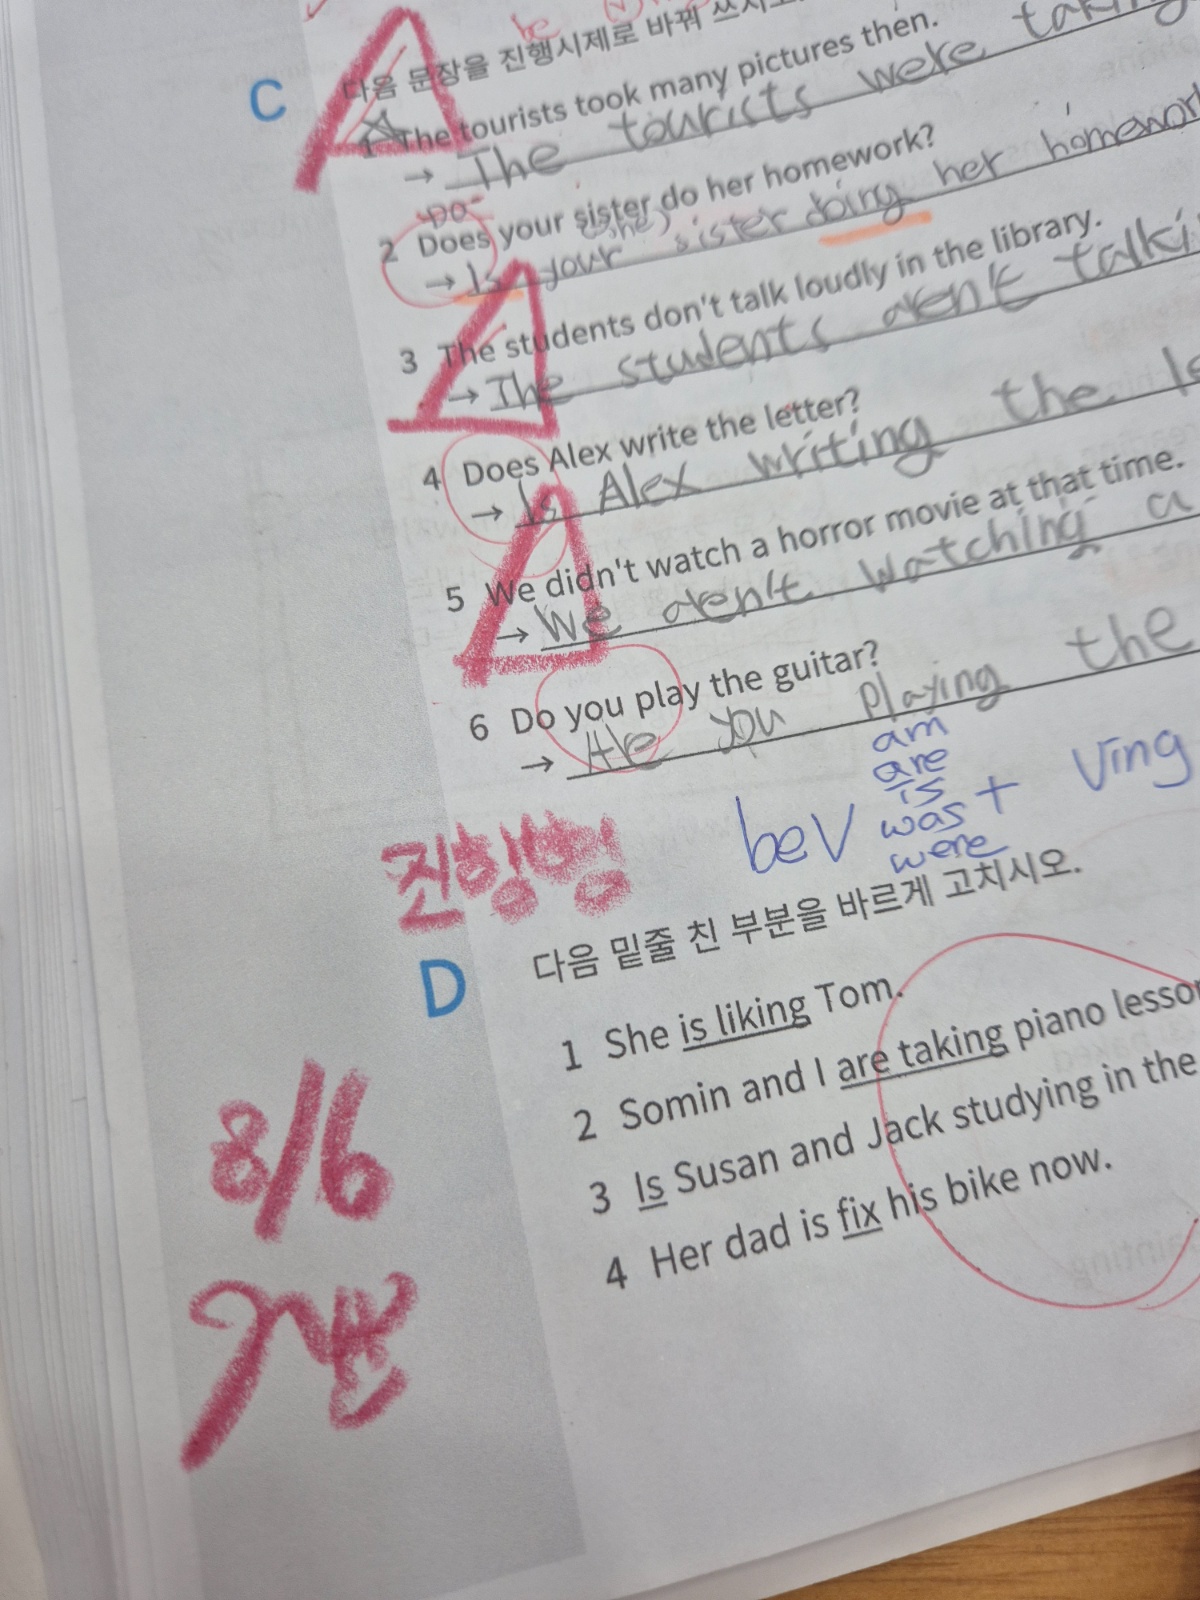 be
C 다음 문장을 진행시제로 바꿔 쓰시오.
1 The tourists took many pictures then.
→ The tourists were taking
Do
2 Does your sister do her homework?
(she)
→ Is your sister doing her homework
3 The students don't talk loudly in the library.
→ The students aren't talki
4 Does Alex write the letter?
→ Is Alex writing the le
5 We didn't watch a horror movie at that time.
→ We aren't watching a
6 Do you play the guitar?
→ Are you playing the
beV am are is was were + Ving
진행형
D 다음 밑줄 친 부분을 바르게 고치시오.
1 She is liking Tom.
2 Somin and I are taking piano lesson
3 Is Susan and Jack studying in the
4 Her dad is fix his bike now.
8/6